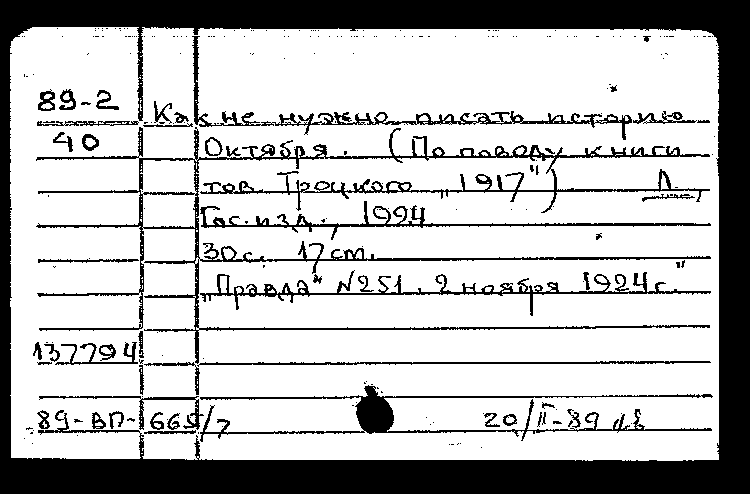 89-2 Как не нужно писать историю
40 Октября. (По поводу книги
тов. Троцкого „1917") Л.,
Гос. изд., 1924
30 с. 17 cm.
„Правда" №251. 2 ноября 1924 г."
137794
89-ВП-665/7 20/II-89